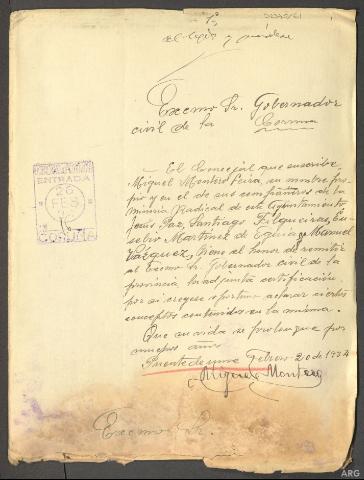 Excmo Sr. Gobernador
civil de la Coruna
El Concejal que suscribe,
Miguel Montero Seira, en nombre pro-
pio y en el de sus compañeros de la
minoria Radical de este Ayuntamiento
Jesús Paz, Santiago Filgueiras, Eu-
sebio Martinez de Eguia y Manuel
Vazquez, tiene el honor de remitir
al Excmo Sr. Gobernador civil de la
provincia la adjunta certificación,
por si creyese oportuno aclarar ciertos
conceptos contenidos en la misma.
Que su vida se prolongue por
muchos años
Puentedeume Febrero 20 de 1934
Miguel Montero
ENTRADA
26
FEB
CORUÑA
Excmo Sr.
ARG